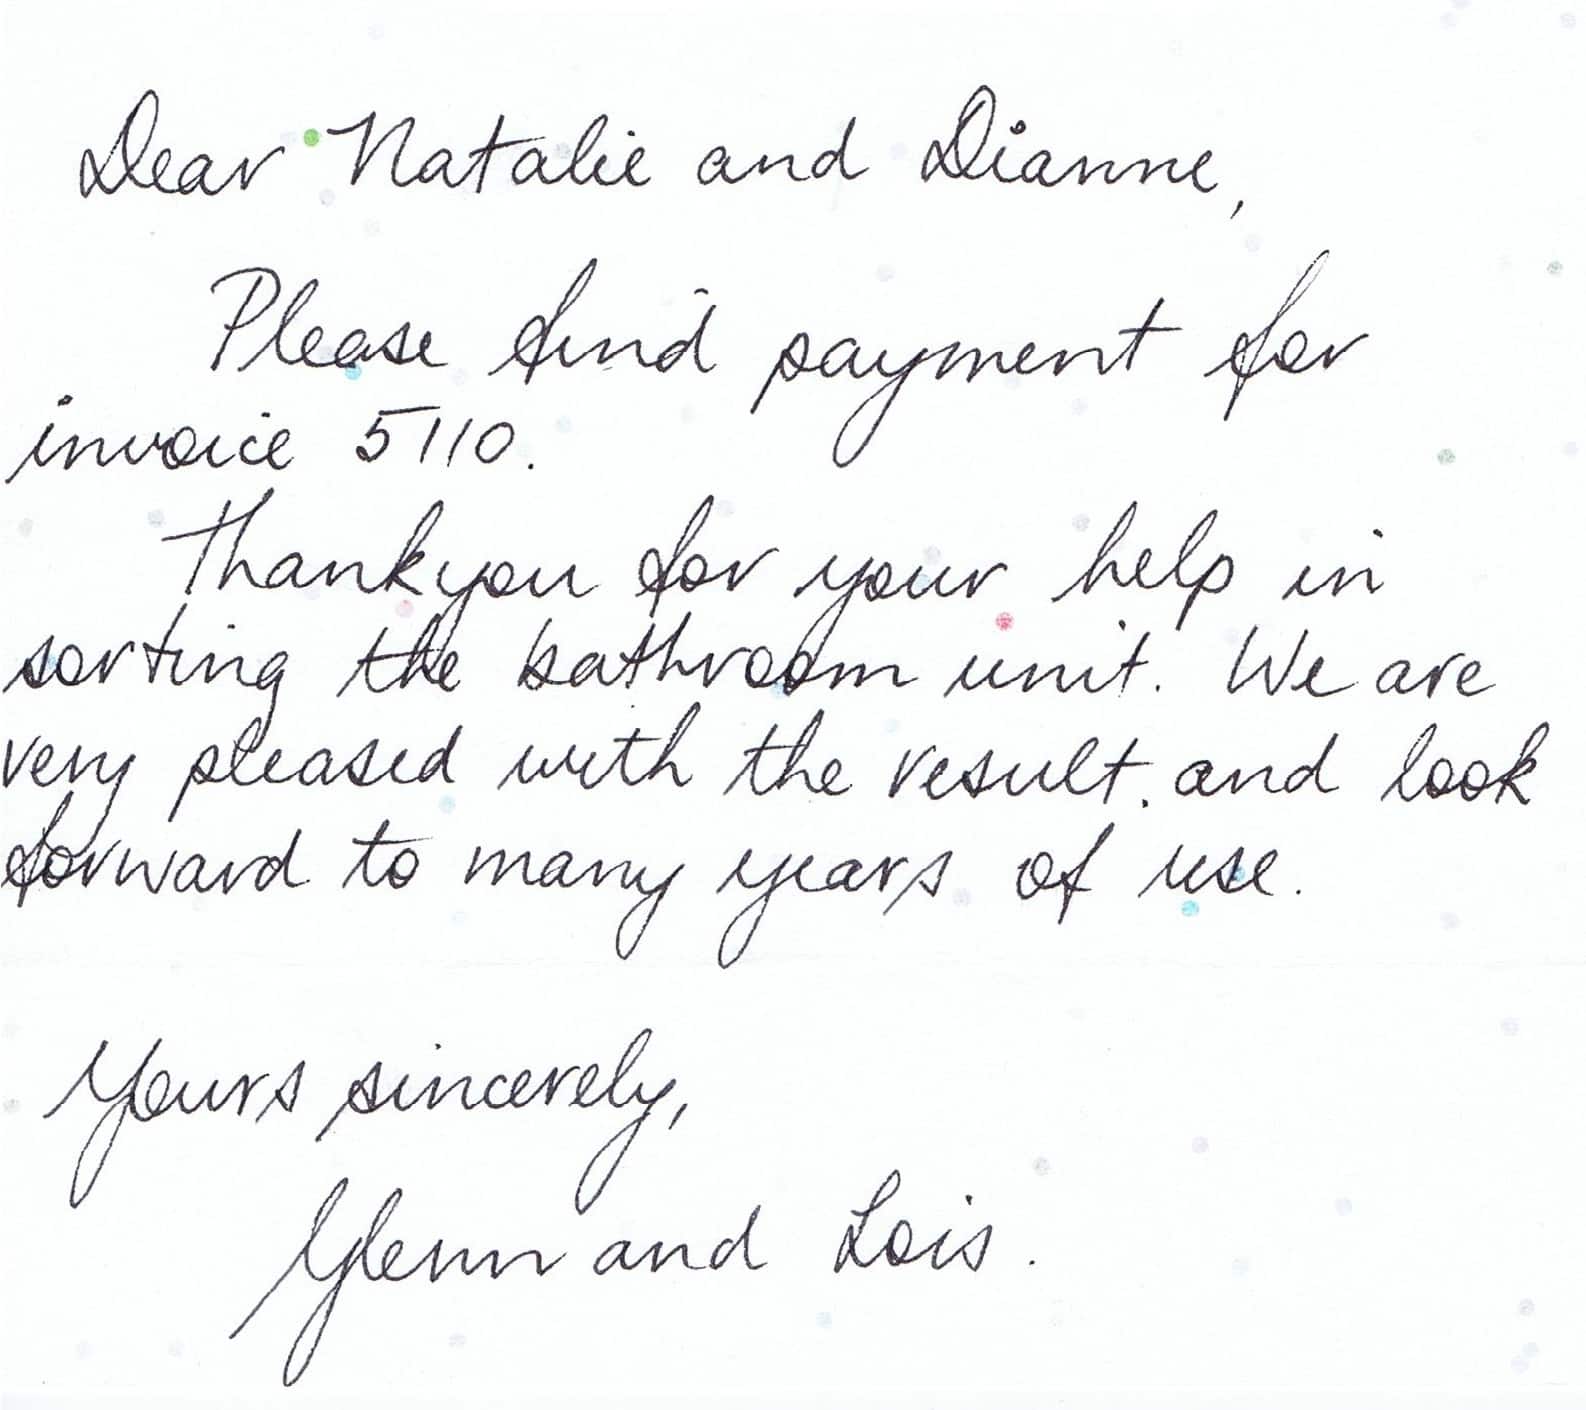 Dear Natalie and Dianne,
Please find payment for
invoice 5110.
Thankyou for your help in
sorting the bathroom unit. We are
very pleased with the result. and look
forward to many years of use.
Yours sincerely,
Glenn and Lois.